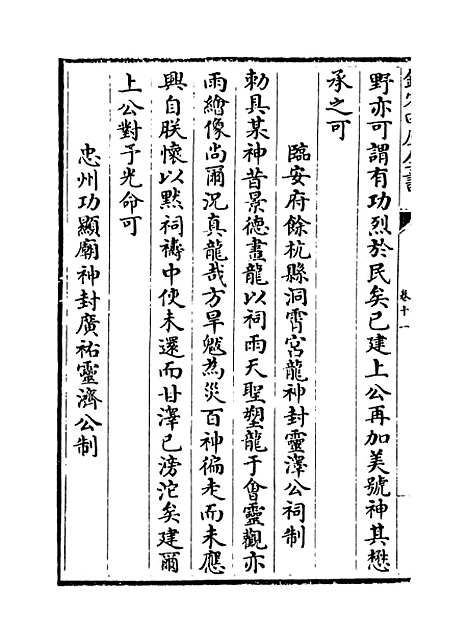 欽定四庫全書
卷十一
野亦可謂有功烈於民矣已建上公再加美號神其懋
承之可
臨安府餘杭縣洞霄宮龍神封靈澤公祠制
勅具某神昔景德畫龍以祠雨天聖塑龍于會靈觀亦
雨繪像尚爾況真龍哉方旱魃為災百神徧走而未應
興自朕懷以默祠禱中使未還而甘澤已滂沱矣建爾
上公對予光命可
忠州功顯廟神封廣祐靈濟公制